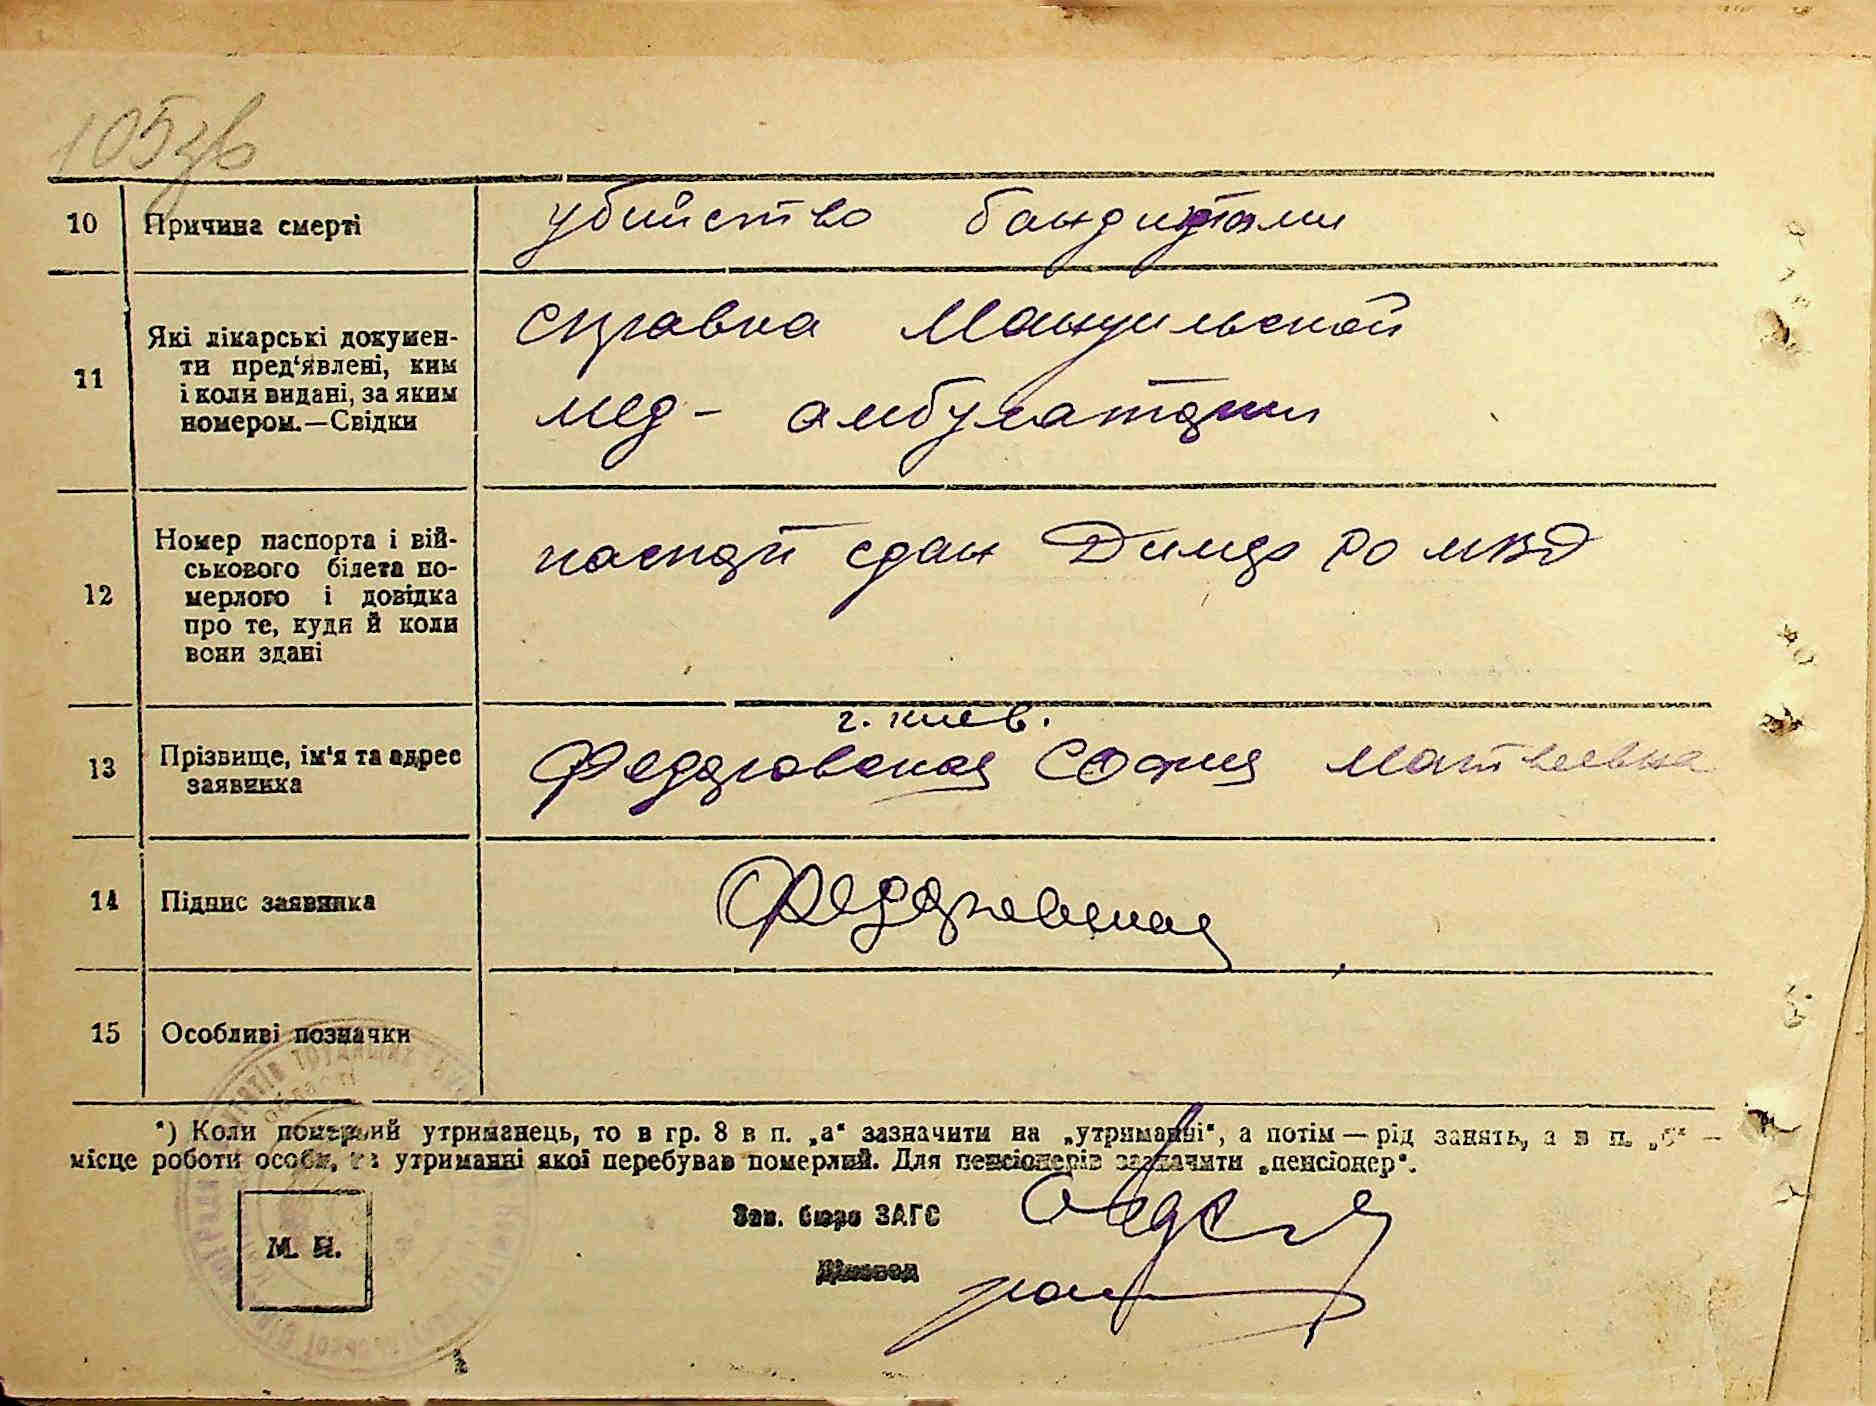 105
10 Причина смерті убийство бандитами
11 Які лікарські докумен-
ти пред‘явлені, ким
і коли видані, за яким
номером.—Свідки
справка Мануильской
мед- амбулатории
12 Номер паспорта і вій-
ськового білета по-
мерлого і довідка
про те, куди й коли
вони здані
паспорт сдан Димер РО МВД
г. Киев.
13 Прізвище, ім‘я та адрес
заявника
Федоровская София Матвеевна
14 Підпис заявника Федоровская
15 Особливі позначки
*) Коли померлий утриманець, то в гр. 8 в п. „а“ зазначити на „утриманні“, а потім — рід занять, а в п. „б“ —
місце роботи особи, на утриманні якої перебував померлий. Для пенсіонерів зазначити „пенсіонер“.
Зав. бюро ЗАГС
М. П.
Діловод